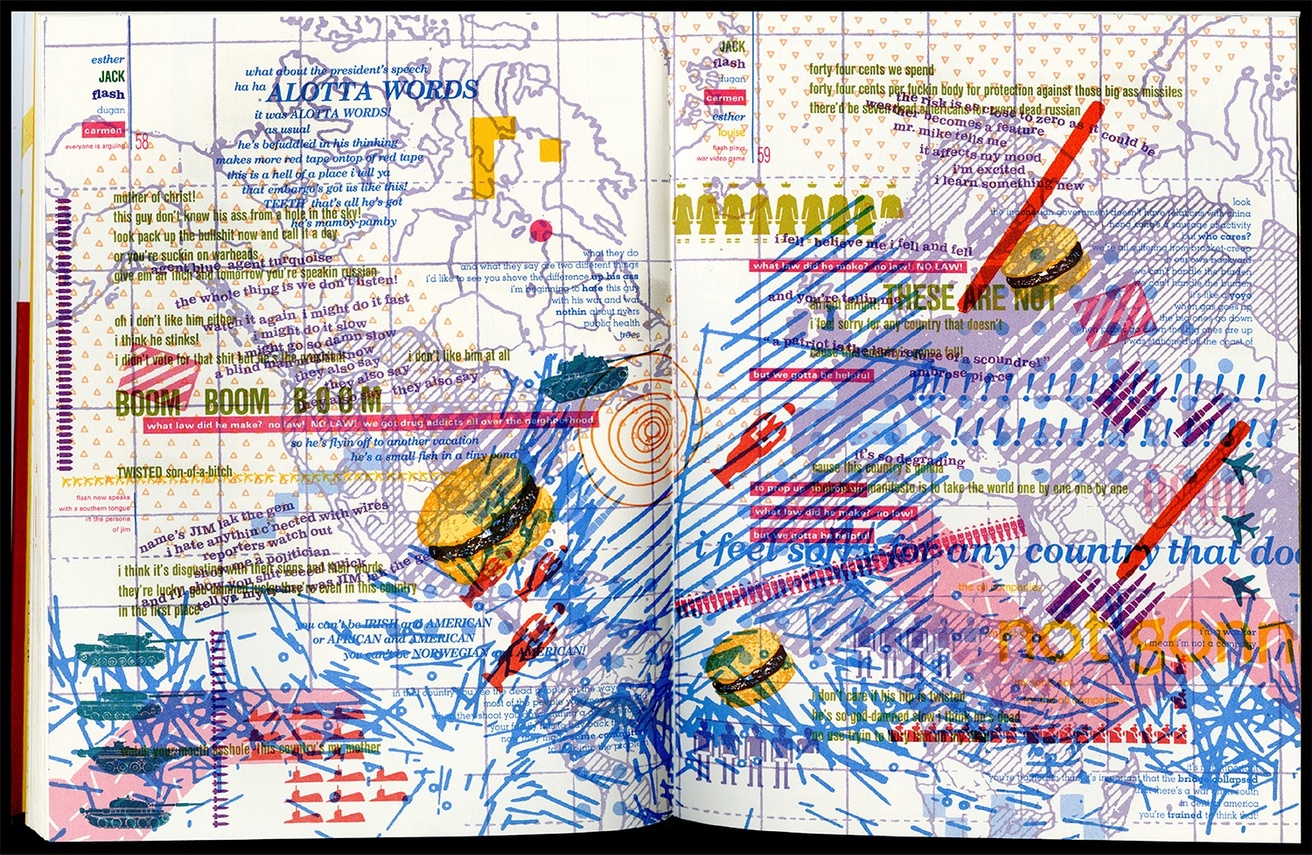 esther
JACK
flash
dugan
carmen
everyone is arguing
58
what about the president's speech
ha ha ALOTTA WORDS
it was ALOTTA WORDS!
as usual
he's befuddled in his thinking
makes more red tape ontop of red tape
this is a hell of a place i tell ya
that embargo's got us like this!
TEETH that's all he's got
he's mamby-pamby
mother of christ!
this guy don't know his ass from a hole in the sky!
look pack up the bullshit now and call it a day
or you're suckin on warheads
agent blue agent turquoise
give em an inch and tomorrow you're speakin russian
the whole thing is we don't listen!
what they do
and what they say are two different things
i'd like to see you shove the difference up his ass
i'm beginning to hate this guy
with his war and war
nothin about rivers
public health
trees
oh i don't like him either
watch it again i might do it fast
i think he stinks!
i might do it slow
might go so damn slow
i didn't vote for that shit but he's the president
a blind man might know
i don't like him at all
they also say
they also say
they also say
BOOM BOOM BOOM
what law did he make? no law! NO LAW! we got drug addicts all over the neighborhood
so he's flyin off to another vacation
he's a small fish in a tiny pond
TWISTED son-of-a-bitch
flash now speaks
with a southern tongue
in the persona
of jim
name's JIM lak the gem
i hate anythin c'nected with wires
reporters watch out
show me a politician
i think it's disgusting with their signs and their words
show you shit seed quick
they're lucky god-damned lucky they're even in this country
tell ya my name was JIM lak the gem
in the first place
you can't be IRISH and AMERICAN
or AFRICAN and AMERICAN
you can't be NORWEGIAN and AMERICAN!
in that country you see the dead people on the way
most of the people
watch your mouth asshole this country's my mother
JACK
flash
dugan
carmen
esther
louise
flash plays
war video game
59
forty four cents we spend
forty four cents per fuckin body for protection against those big ass missiles
there'd be seven dead americans for every dead russian
the risk is as close to zero as it could be
wearing her becomes a feature
mr. mike tells me
it affects my mood
i'm excited
i learn something new
look
the indonesian government doesn't have relations with china
hong kong's a sausage of activity
but who cares?
we're all suffering from bracket-creep
in our own backyard
we can't handle the burden
we can't handle the burden
it's like a yoyo
when gas goes up
the big ones go down
when gas goes down the big ones are up
i was stationed off the coast of
i fell believe me i fell and fell
what law did he make? no law! NO LAW!
and you're tellin me
THESE ARE NOT
alright alright!
i feel sorry for any country that doesn't
"a patriot is the last refuge of a scoundrel"
ambrose pierce
but we gotta be helpful
! ! ! ! ! ! ! ! ! ! ! ! ! ! ! !
! ! ! ! ! ! ! ! ! ! ! ! ! ! !
it's so degrading
cause this country's gonna
to prop up
manifesto is to take the world one by one one by one
what law did he make? no law!
but we gotta be helpful
i feel sorry for any country that doe
the oil companies
not gonn
i'm a worker
i mean i'm not a company
i don't care if his hip is twisted
he's so god-damned slow i think he's dead
no use tryin to
it's important that the bridge collapsed
that there's a war down south
in central america
you're trained to think that!